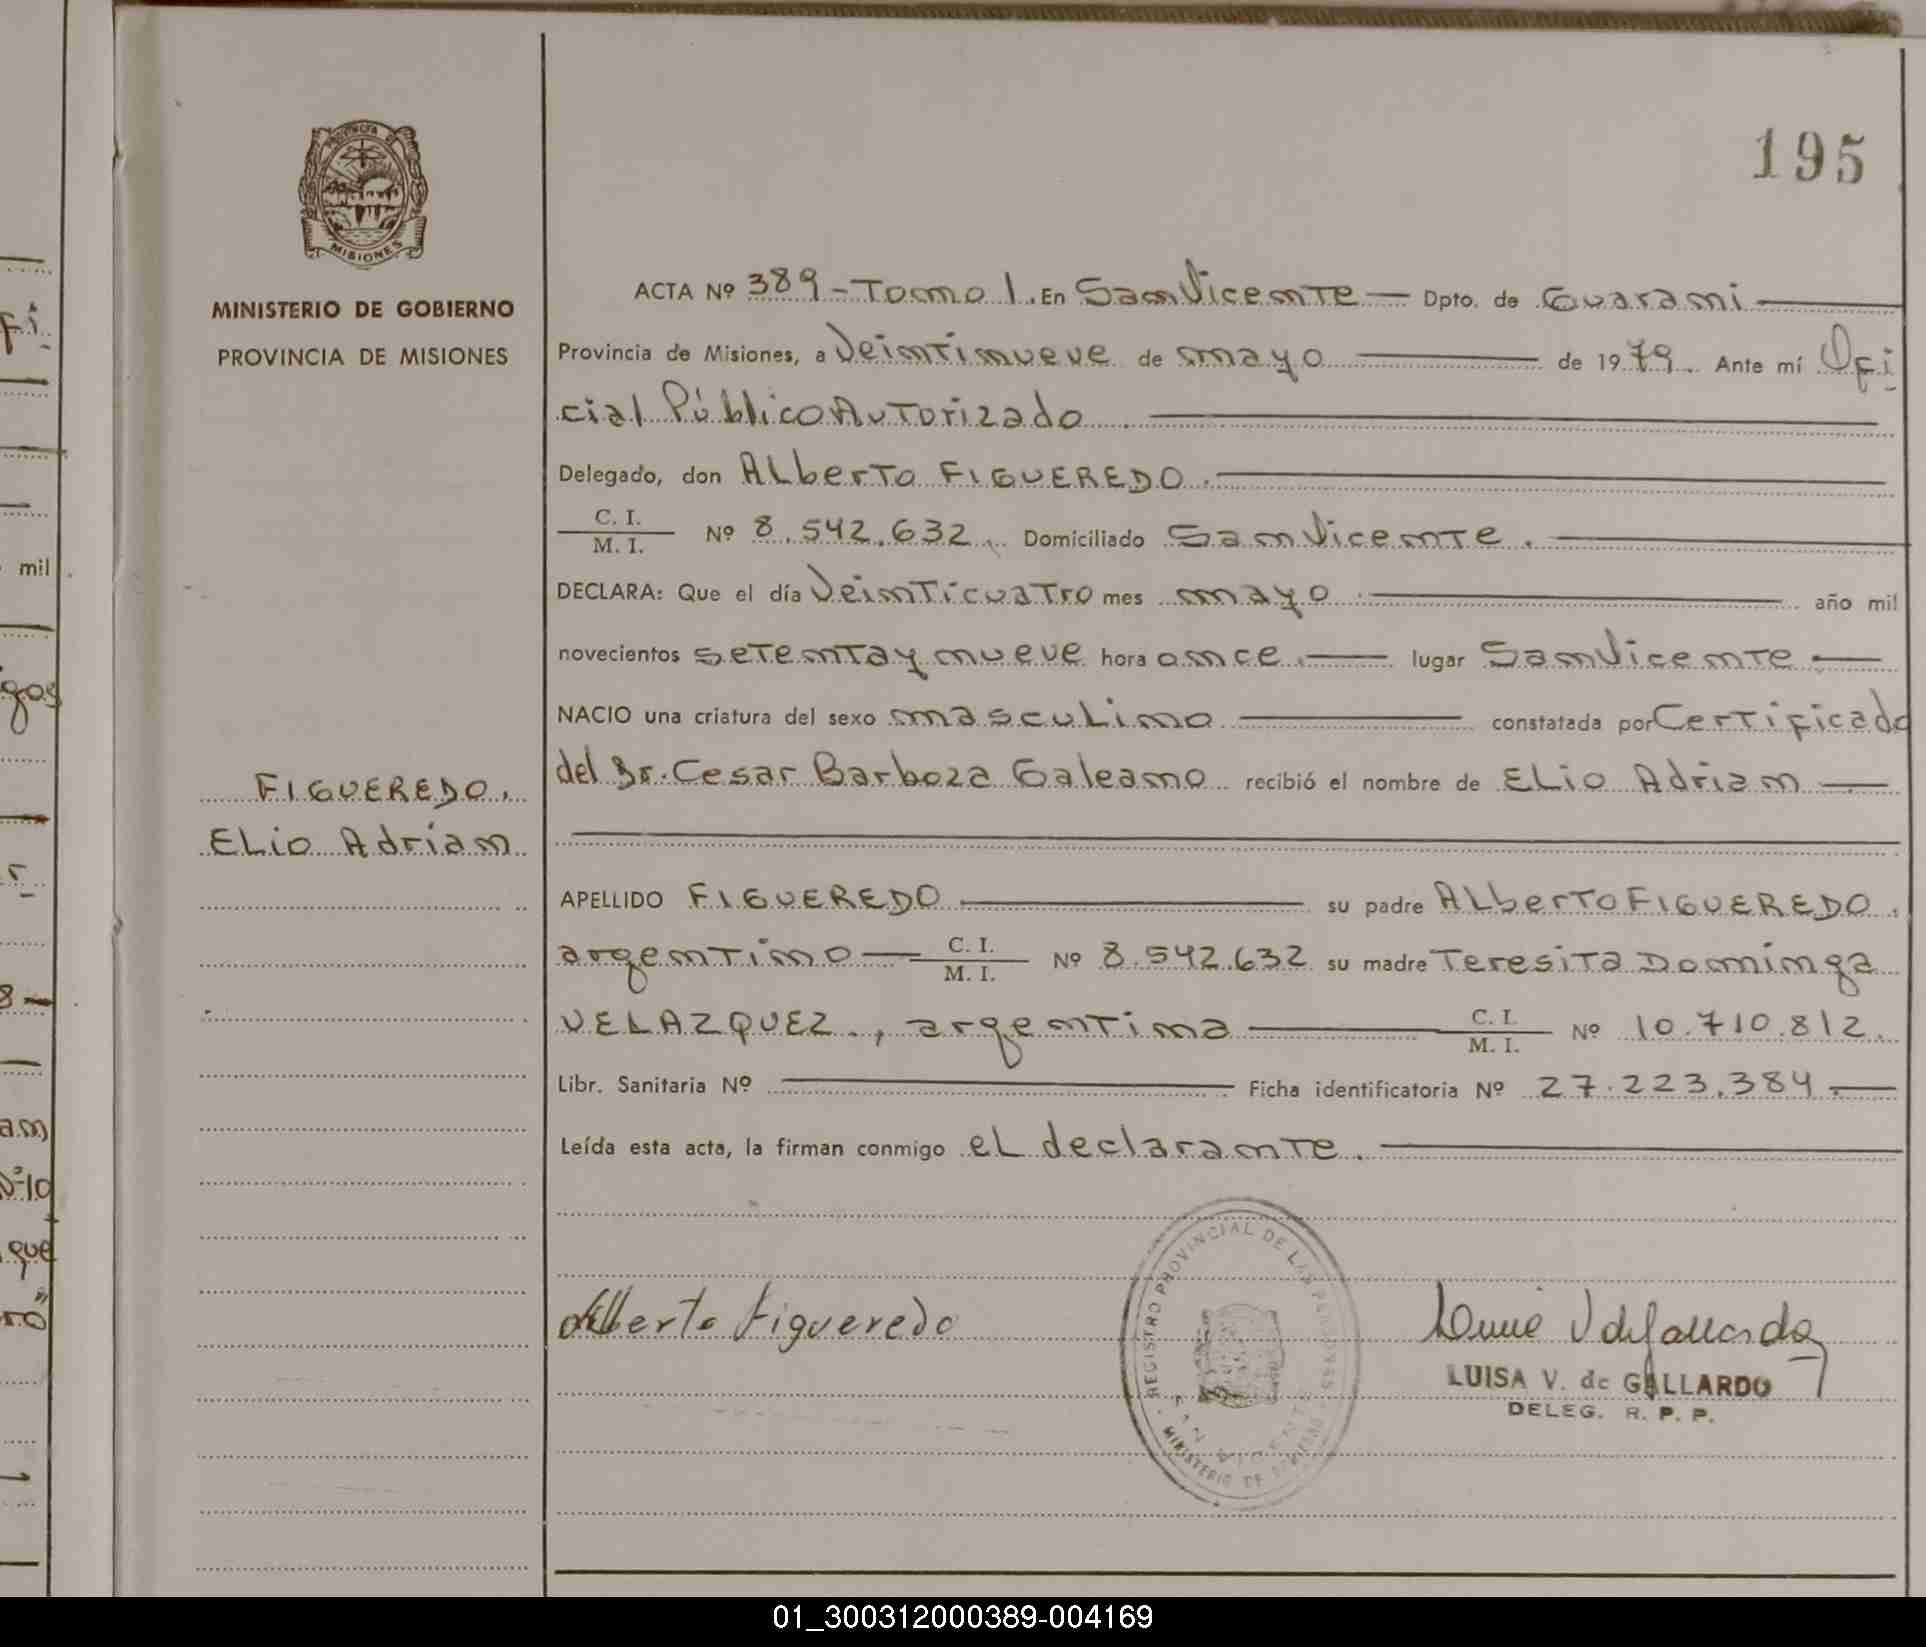 195
PROVINCIA DE
MISIONES
MINISTERIO DE GOBIERNO
PROVINCIA DE MISIONES
FIGUEREDO,
ELio Adrian
ACTA Nº 389 - Tomo 1. En San Vicente — Dpto. de Guarani
Provincia de Misiones, a Veintinueve de mayo de 1979. Ante mí Ofi
cial Público Autorizado
Delegado, don ALberto FIGUEREDO.
C. I.
M. I. Nº 8.542.632. Domiciliado San Vicente.
DECLARA: Que el día Veinticuatro mes mayo año mil
novecientos setentay nueve hora once. lugar San Vicente
NACIO una criatura del sexo mascuLino constatada por Certificado
del Dr. Cesar Barboza Galeano recibió el nombre de ELio Adrian
APELLIDO FIGUEREDO su padre ALberto FIGUEREDO.
argentino — C. I.
M. I. Nº 8.542.632 su madre Teresita Dominga
VELAZQUEZ., argentina C. I.
M. I. Nº 10.710.812.
Libr. Sanitaria Nº Ficha identificatoria Nº 27.223.384
Leída esta acta, la firman conmigo eL declarante.
Alberto Figueredo
REGISTRO PROVINCIAL DE LAS PERSONAS
SAN VICENTE
MINISTERIO DE GOBIERNO
LUISA V. de GALLARDO
DELEG. R. P. P.
mil
gos
8 —
am
Nº 10
que
01_300312000389-004169